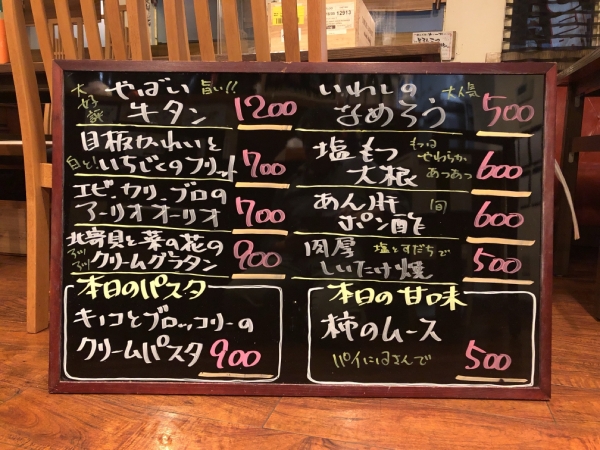 大好評
やばい
旨い!!
牛タン 1200
目板かれいと
いちじくのフリット 700
エビ、カリ、ブロの
アーリオオーリオ 700
北寄貝と菜の花の
クリームグラタン 900
本日のパスタ
キノコとブロッコリーの
クリームパスタ 900
いわしの
大人気
なめろう 500
塩もつ
大根 600
もつは
やわらか
あつあつ
あん肝 旬
ポン酢 600
肉厚 塩とすだちで
しいたけ焼 500
本日の甘味
柿のムース
パイにはさんで 500
12913